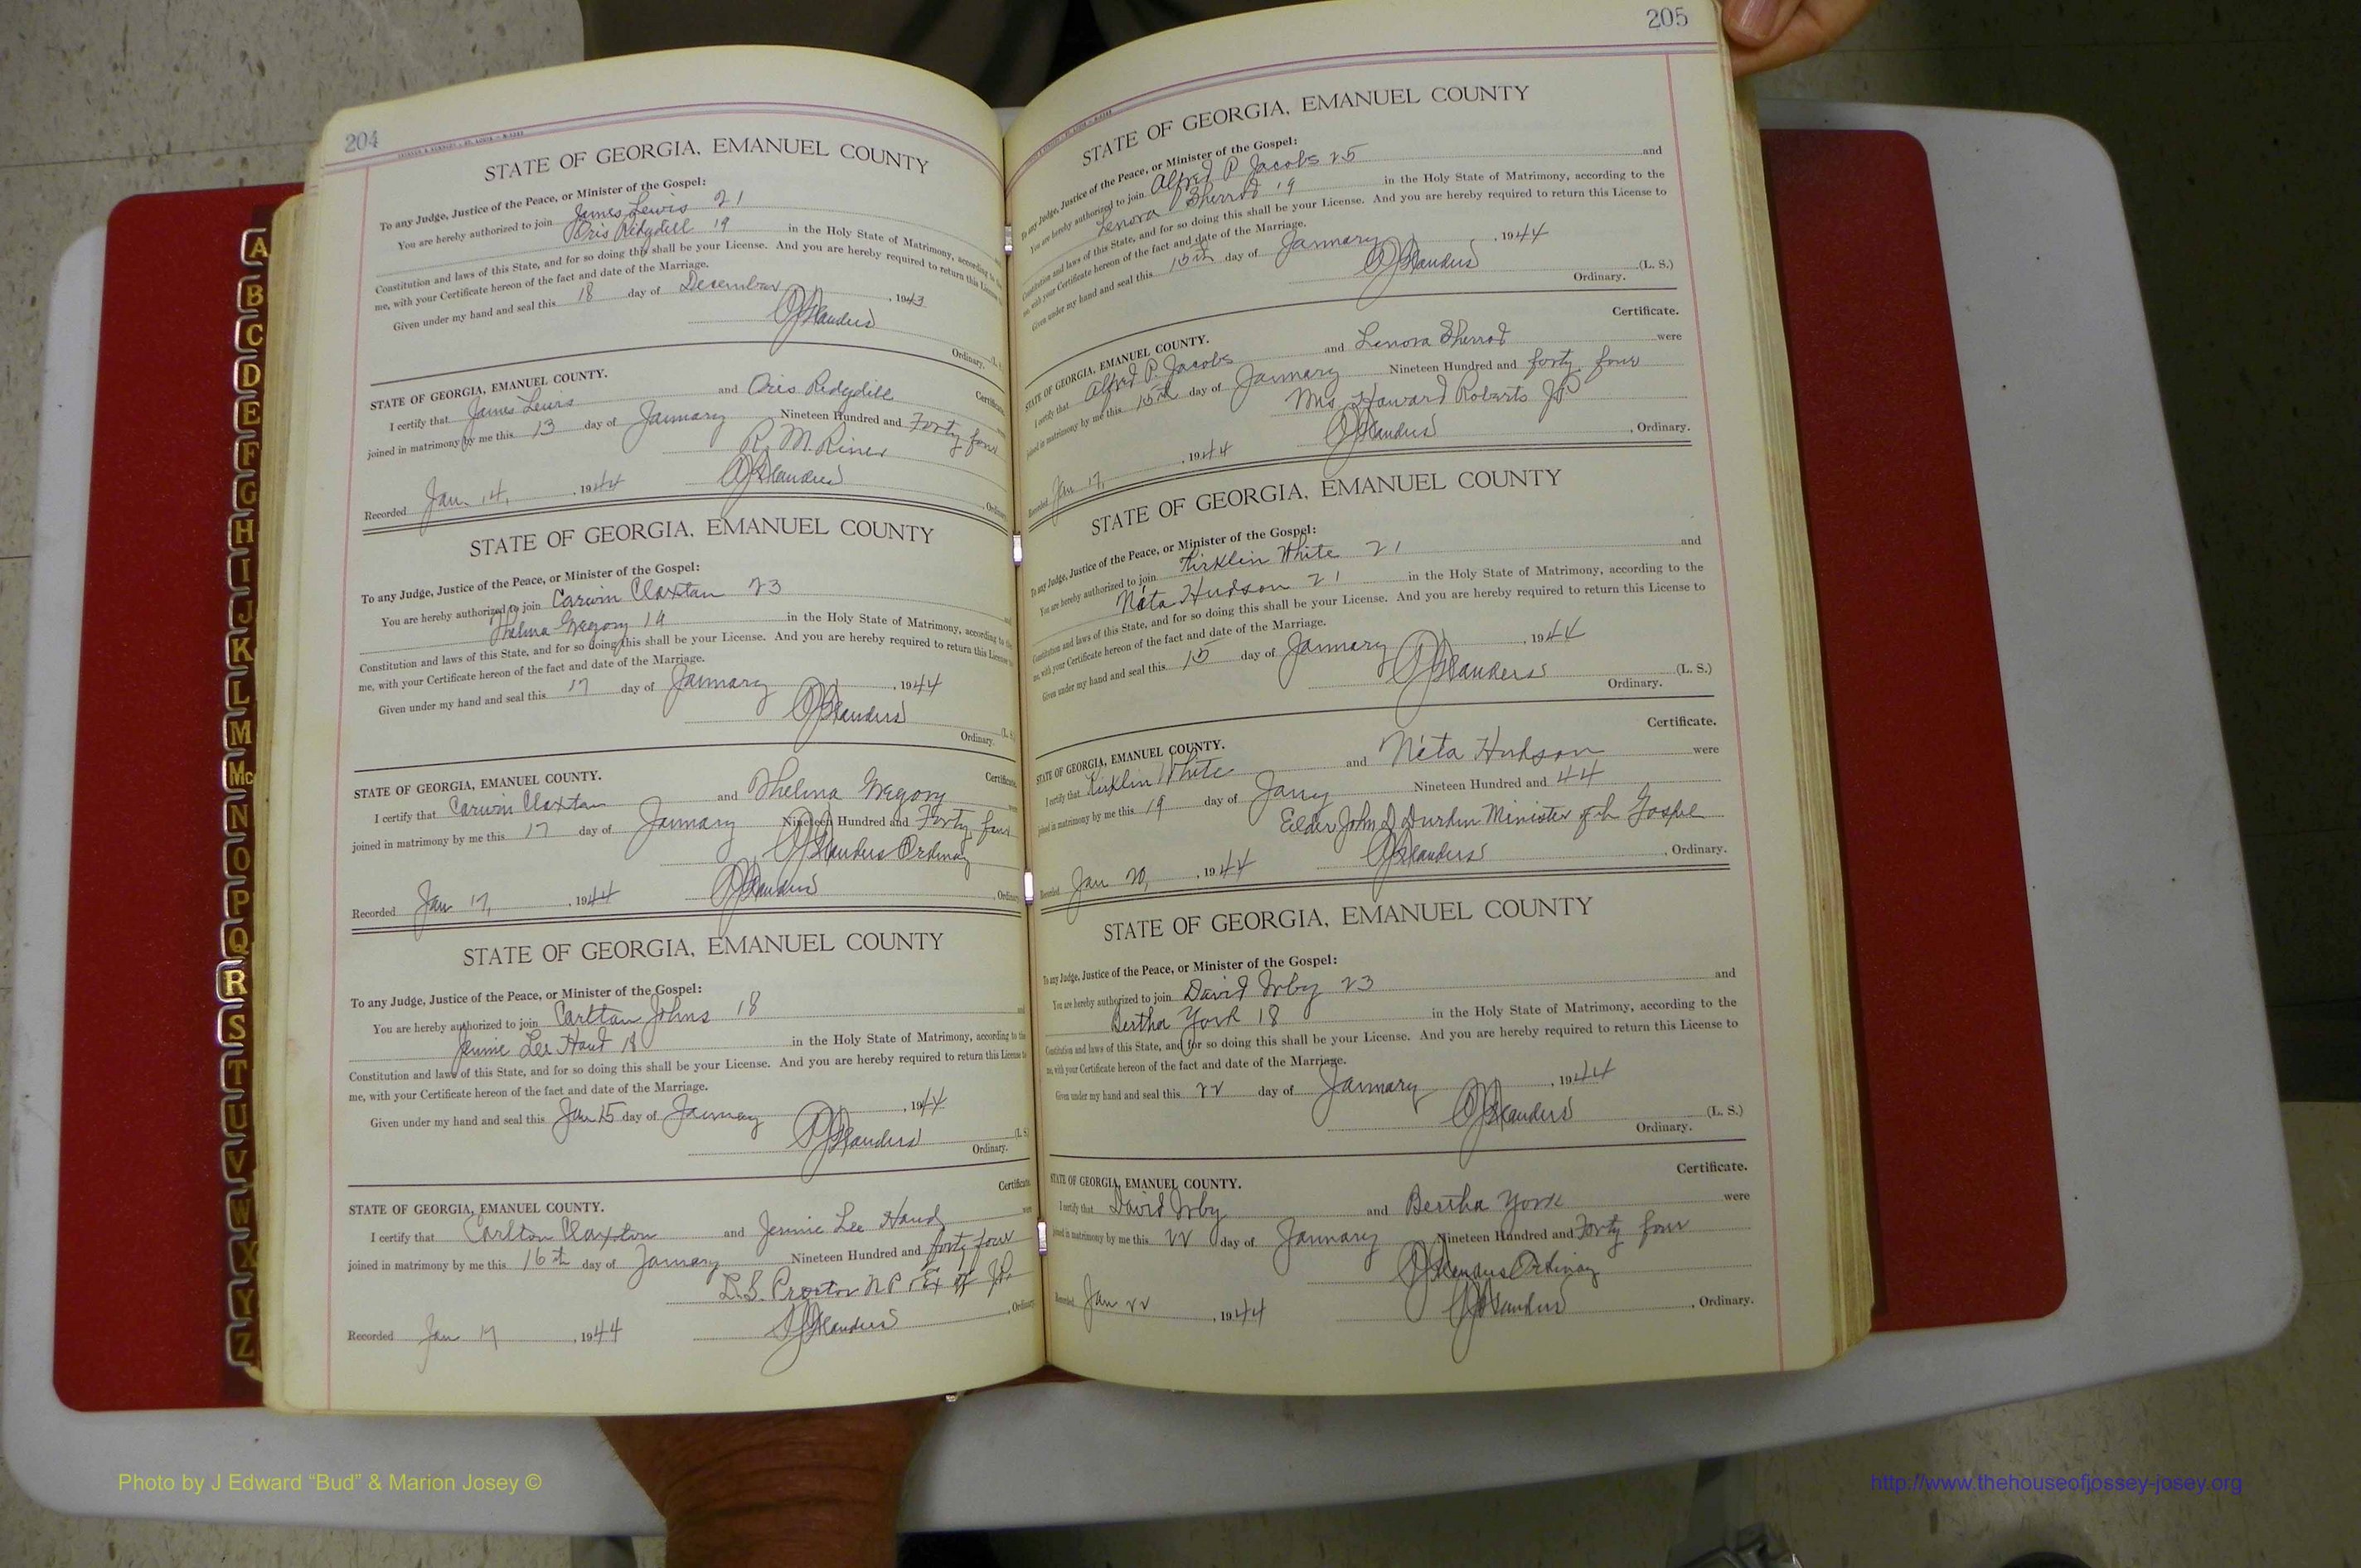 204
STATE OF GEORGIA, EMANUEL COUNTY
To any Judge, Justice of the Peace, or Minister of the Gospel:
You are hereby authorized to join James Lewis 21
Oris Ridgdill 19 in the Holy State of Matrimony, according to the
Constitution and laws of this State, and for so doing this shall be your License. And you are hereby required to return this License
me, with your Certificate hereon of the fact and date of the Marriage.
Given under my hand and seal this 18 day of December, 1943
(L. S.
Ordinary.
STATE OF GEORGIA, EMANUEL COUNTY. Certificate
I certify that James Lewis and Oris Ridgdill
joined in matrimony by me this 13 day of January Nineteen Hundred and Forty four
R. M. Riner
Recorded Jan 14, , 1944 , Ordinary
STATE OF GEORGIA, EMANUEL COUNTY
To any Judge, Justice of the Peace, or Minister of the Gospel:
You are hereby authorized to join Carwin Claxton 23
Thelma Gregory 19 in the Holy State of Matrimony, according to the
Constitution and laws of this State, and for so doing this shall be your License. And you are hereby required to return this License
me, with your Certificate hereon of the fact and date of the Marriage.
Given under my hand and seal this 17 day of January , 1944
(L. S.
Ordinary.
STATE OF GEORGIA, EMANUEL COUNTY. Certificate
I certify that Carwin Claxton and Thelma Gregory
joined in matrimony by me this 17 day of January Nineteen Hundred and Forty four
Ordinary
Recorded Jan 17, , 1944 , Ordinary
STATE OF GEORGIA, EMANUEL COUNTY
To any Judge, Justice of the Peace, or Minister of the Gospel:
You are hereby authorized to join Carlton Johns 18
Jennie Lee Hand 18 in the Holy State of Matrimony, according to the
Constitution and laws of this State, and for so doing this shall be your License. And you are hereby required to return this License to
me, with your Certificate hereon of the fact and date of the Marriage.
Given under my hand and seal this Jan 15 day of January , 1944
(L. S
Ordinary.
Certificate
STATE OF GEORGIA, EMANUEL COUNTY.
I certify that Carlton Claxton and Jennie Lee Hand were
joined in matrimony by me this 16th day of January Nineteen Hundred and forty four
L.S. Proctor N P & Ex of J.P.
Recorded Jan 17 , 1944 , Ordinary
205
STATE OF GEORGIA, EMANUEL COUNTY
To any Judge, Justice of the Peace, or Minister of the Gospel:
You are hereby authorized to join Alfred P Jacobs 25 and
Lenora Sherrod 19 in the Holy State of Matrimony, according to the
Constitution and laws of this State, and for so doing this shall be your License. And you are hereby required to return this License to
me, with your Certificate hereon of the fact and date of the Marriage.
Given under my hand and seal this 15th day of January , 1944
(L. S.)
Ordinary.
Certificate.
STATE OF GEORGIA, EMANUEL COUNTY.
I certify that Alfred P. Jacobs and Lenora Sherrod were
joined in matrimony by me this 15th day of January Nineteen Hundred and forty four
Mrs. Howard Roberts JP
Recorded Jan 17, , 1944 , Ordinary.
STATE OF GEORGIA, EMANUEL COUNTY
To any Judge, Justice of the Peace, or Minister of the Gospel:
You are hereby authorized to join Kirklin White 21 and
Neta Hudson 21 in the Holy State of Matrimony, according to the
Constitution and laws of this State, and for so doing this shall be your License. And you are hereby required to return this License to
me, with your Certificate hereon of the fact and date of the Marriage.
Given under my hand and seal this 15 day of January , 1944
(L. S.)
Ordinary.
Certificate.
STATE OF GEORGIA, EMANUEL COUNTY.
I certify that Kirklin White and Neta Hudson were
joined in matrimony by me this 19 day of Jany Nineteen Hundred and 44
Elder John D Durden Minister of th Gospel
Recorded Jan 20, , 1944 , Ordinary.
STATE OF GEORGIA, EMANUEL COUNTY
To any Judge, Justice of the Peace, or Minister of the Gospel:
You are hereby authorized to join David Irby 23 and
Bertha York 18 in the Holy State of Matrimony, according to the
Constitution and laws of this State, and for so doing this shall be your License. And you are hereby required to return this License to
me, with your Certificate hereon of the fact and date of the Marriage.
Given under my hand and seal this 22 day of January , 1944
(L. S.)
Ordinary.
Certificate.
STATE OF GEORGIA, EMANUEL COUNTY.
I certify that David Irby and Bertha York were
joined in matrimony by me this 22 day of January Nineteen Hundred and Forty four
Ordinary
Recorded Jan 22 , 1944 , Ordinary.
A
B
C
D
E
F
G
H
I
J
K
L
M
Mc
N
O
P
Q
R
S
T
U
V
W
X
Y
Z
Photo by J Edward “Bud” & Marion Josey ©
http://www.thehouseofjossey-josey.org